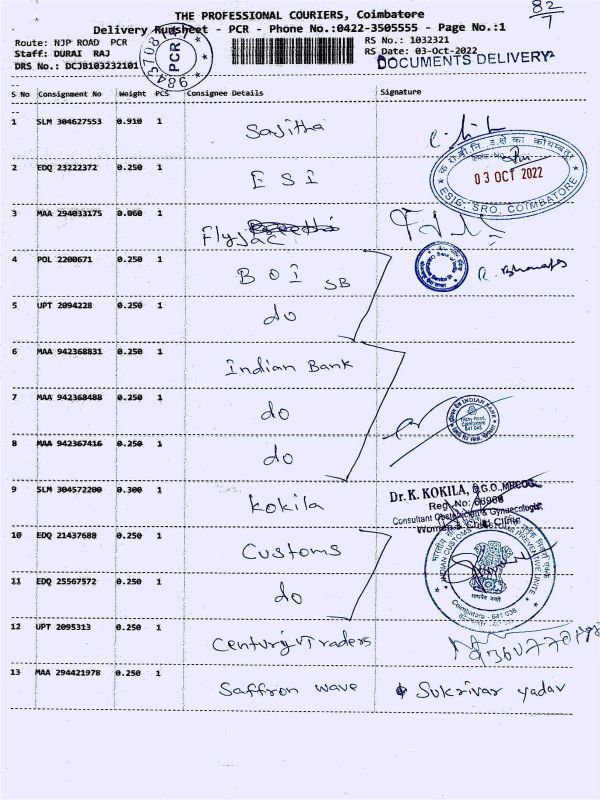 82/1
THE PROFESSIONAL COURIERS, Coimbatore
Delivery Runsheet - PCR - Phone No.:0422-3505555 - Page No.:1
Route: NJP ROAD PCR
RS No.: 1032321
Staff: DURAI RAJ
RS Date: 03-Oct-2022
DRS No.: DCJB103232101
DOCUMENTS DELIVERY
PCR
S No Consignment No Weight PCS Consignee Details Signature
1 SLM 304627553 0.910 1 Sajitha
2 EDQ 23222372 0.250 1 ESI
03 OCT 2022
ESIC, SRO, COIMBATORE
3 MAA 294033175 0.060 1 Flyjac
4 POL 2200671 0.250 1 BOI SB
5 UPT 2094228 0.250 1 do
6 MAA 942368831 0.250 1 Indian Bank
7 MAA 942368488 0.250 1 do
INDIAN BANK
8 MAA 942367416 0.250 1 do
9 SLM 304572200 0.300 1 Kokila
Dr. K. KOKILA, D.G.O.,
Reg. No: 
Consultant Obstetrician & Gynaecologist
Women & Child Clinic
10 EDQ 21437688 0.250 1 Customs
INDIAN CUSTOMS PREVENTIVE UNIT
Coimbatore - 641 036
11 EDQ 25567572 0.250 1 do
12 UPT 2095313 0.250 1 Century Traders
13 MAA 294421978 0.250 1 Saffron wave Sukrivar yadav